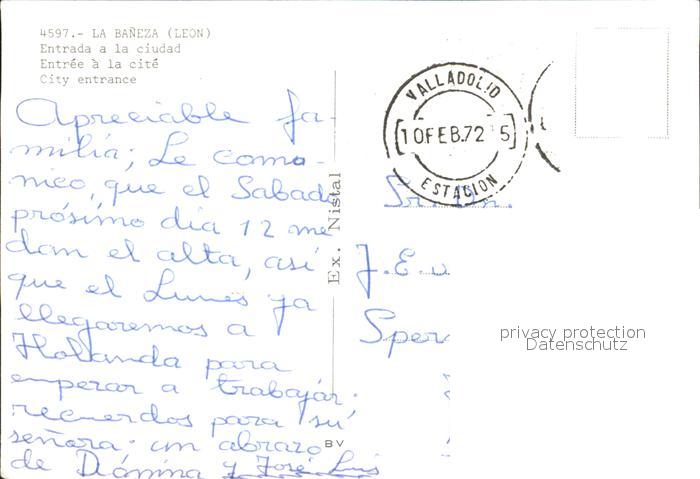 4597.- LA BAÑEZA (LEON)
Entrada a la ciudad
Entrée à la cité
City entrance
Apreciable fa-
milia; Le como-
nico, que el Sabado
próximo dia 12 me
dan el alta, así
que el Lunes ya
llegaremos a
Holanda para
emperar a trabajar;
recuerdos para su
señora. un abrazo
de Diónina y José Luis
Ex. Nistal
BV
VALLADOLID
10 FEB.72 5
ESTACION
Sr. Dn.
J.E.
Sper
privacy protection
Datenschutz